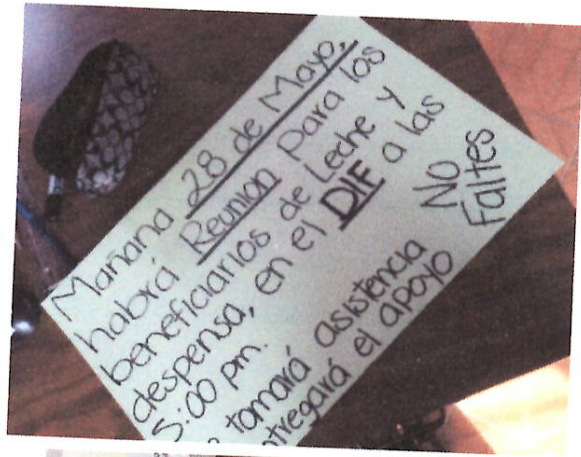 Mañana 28 de Mayo,
habrá Reunion Para los
beneficiarios de Leche y
despensa, en el DIF a las
5:00 pm.
No
Faltes
tomará asistencia
el apoyo